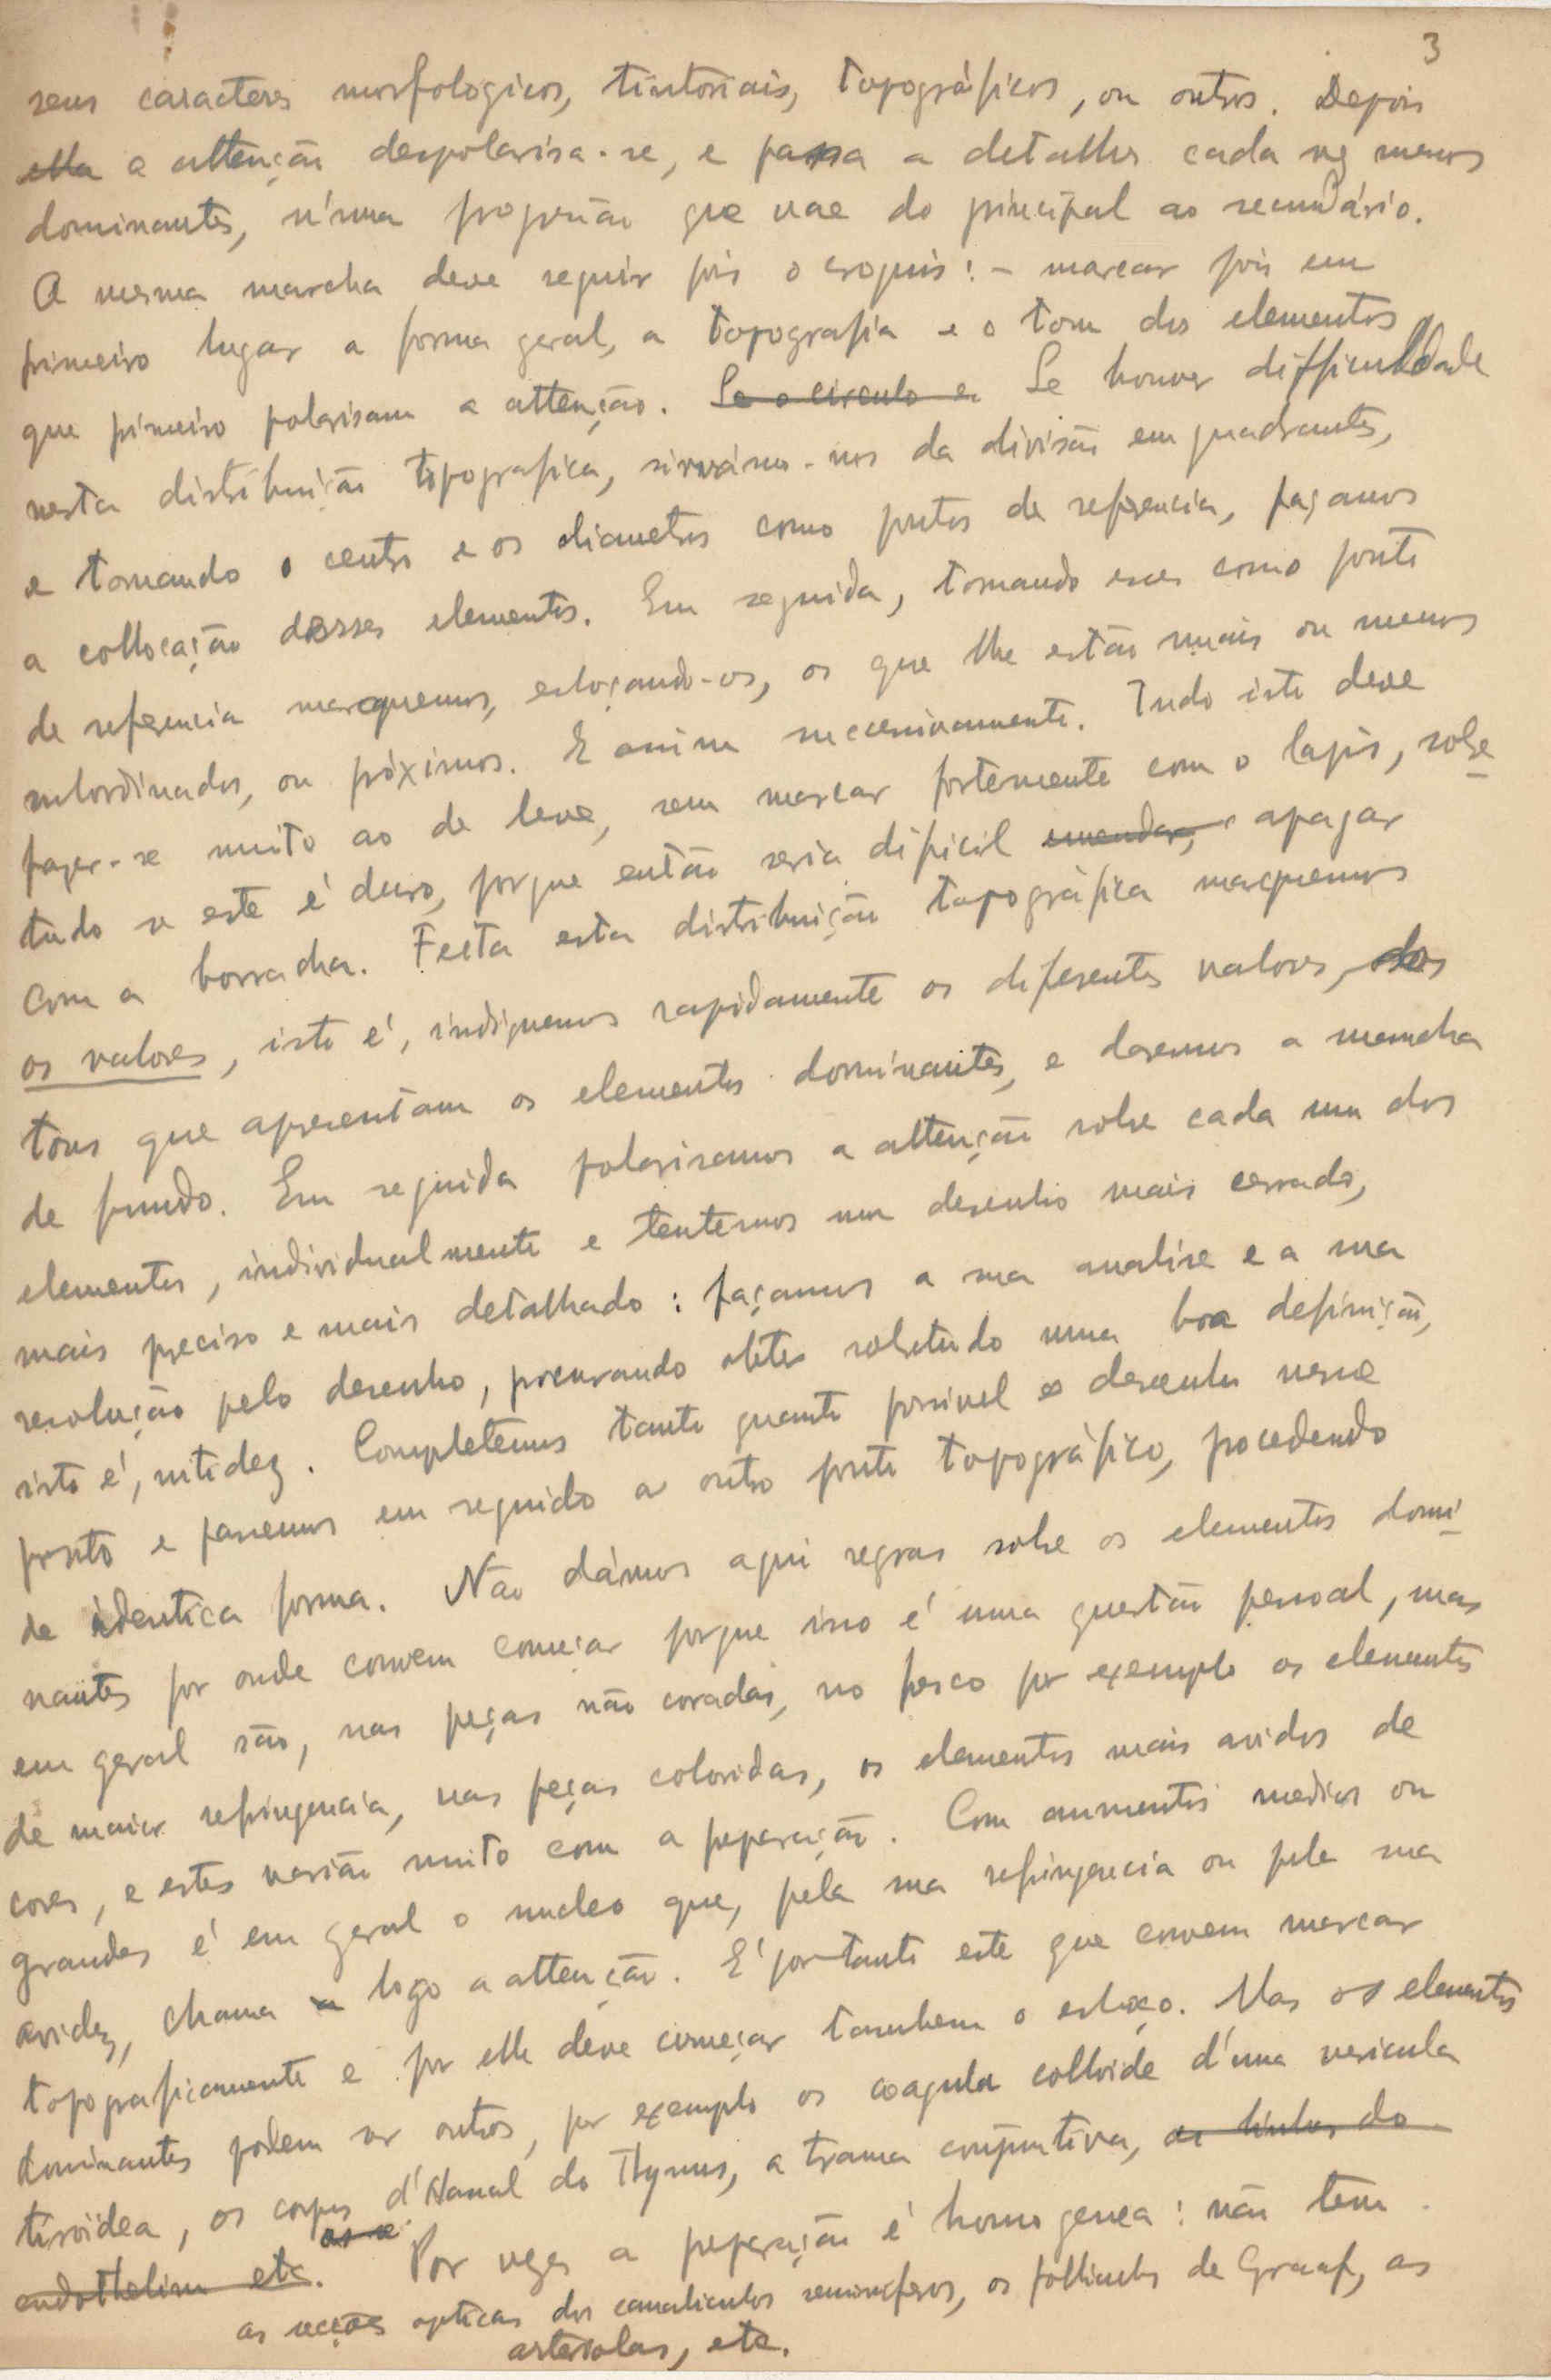 3
seus caracteres morfologicos, tintoriais, topográficos, ou outros. Depois
ella a attenção despolarisa-se, e passa a detalhes cada vez menos
dominantes, n'uma progressão que vae do principal ao secundário.
A mesma marcha deve seguir pois o croquis: - marcar pois em
primeiro lugar a forma geral, a topografia e o tom dos elementos
que primeiro polarisam a attenção. Se o circulo e Se houver difficuldade
nesta distribuição topografica, sirvámo-nos da divisão em quadrantes,
e tomando o centro e os diametros como pontos de referencia, façamos
a collocação desses elementos. Em seguida, tomando esses como ponto
de referencia marquemos, esboçando-os, os que lhe estão mais ou menos
subordinados, ou próximos. E assim successivamente. Tudo isto deve
fazer-se muito ao de leve, sem marcar fortemente com o lapis, sobre-
tudo se este é duro, porque então seria dificil emendar, apagar
com a borracha. Feita esta distribuição topográfica marquemos
os valores, isto é, indiquemos rapidamente os diferentes valores, dos
tons que apresentam os elementos dominantes, e daremos a mancha
de fundo. Em seguida polarisamos a attenção sobre cada um dos
elementos, individualmente e tentemos um desenho mais cerrado,
mais preciso e mais detalhado: façamos a sua analise e a sua
resolução pelo desenho, procurando obter sobretudo uma boa definição,
isto é, nitidez. Completemos tanto quanto possivel o desenho nesse
ponto e passemos em seguida a outro ponto topográfico, procedendo
de identica forma. Não dámos aqui regras sobre os elementos domi-
nantes por onde convem começar porque isso é uma questão pessoal, mas
em geral são, nas peças não coradas, no fresco por exemplo os elementos
de maior refringencia, nas peças coloridas, os elementos mais avidos de
cores, e estes varião muito com a preparação. Com aumentos medios ou
grandes é em geral o nucleo que, pela sua refringencia ou pela sua
avidez, chama logo a attenção. É portanto este que convem marcar
topograficamente e por elle deve começar tambem o esboço. Mas os elementos
dominantes podem ser outros, por exemplo os coagula colloide d'uma vesicula
tiroidea, os corpos d'Hassal do Thymus, a trama conjuntiva, as linhas do
endothelium etc. Por vezes a preparação é homogenea: não tem
as secções opticas dos canaliculos seminiferos, os folliculos de Graaf, as
arteriolas, etc.